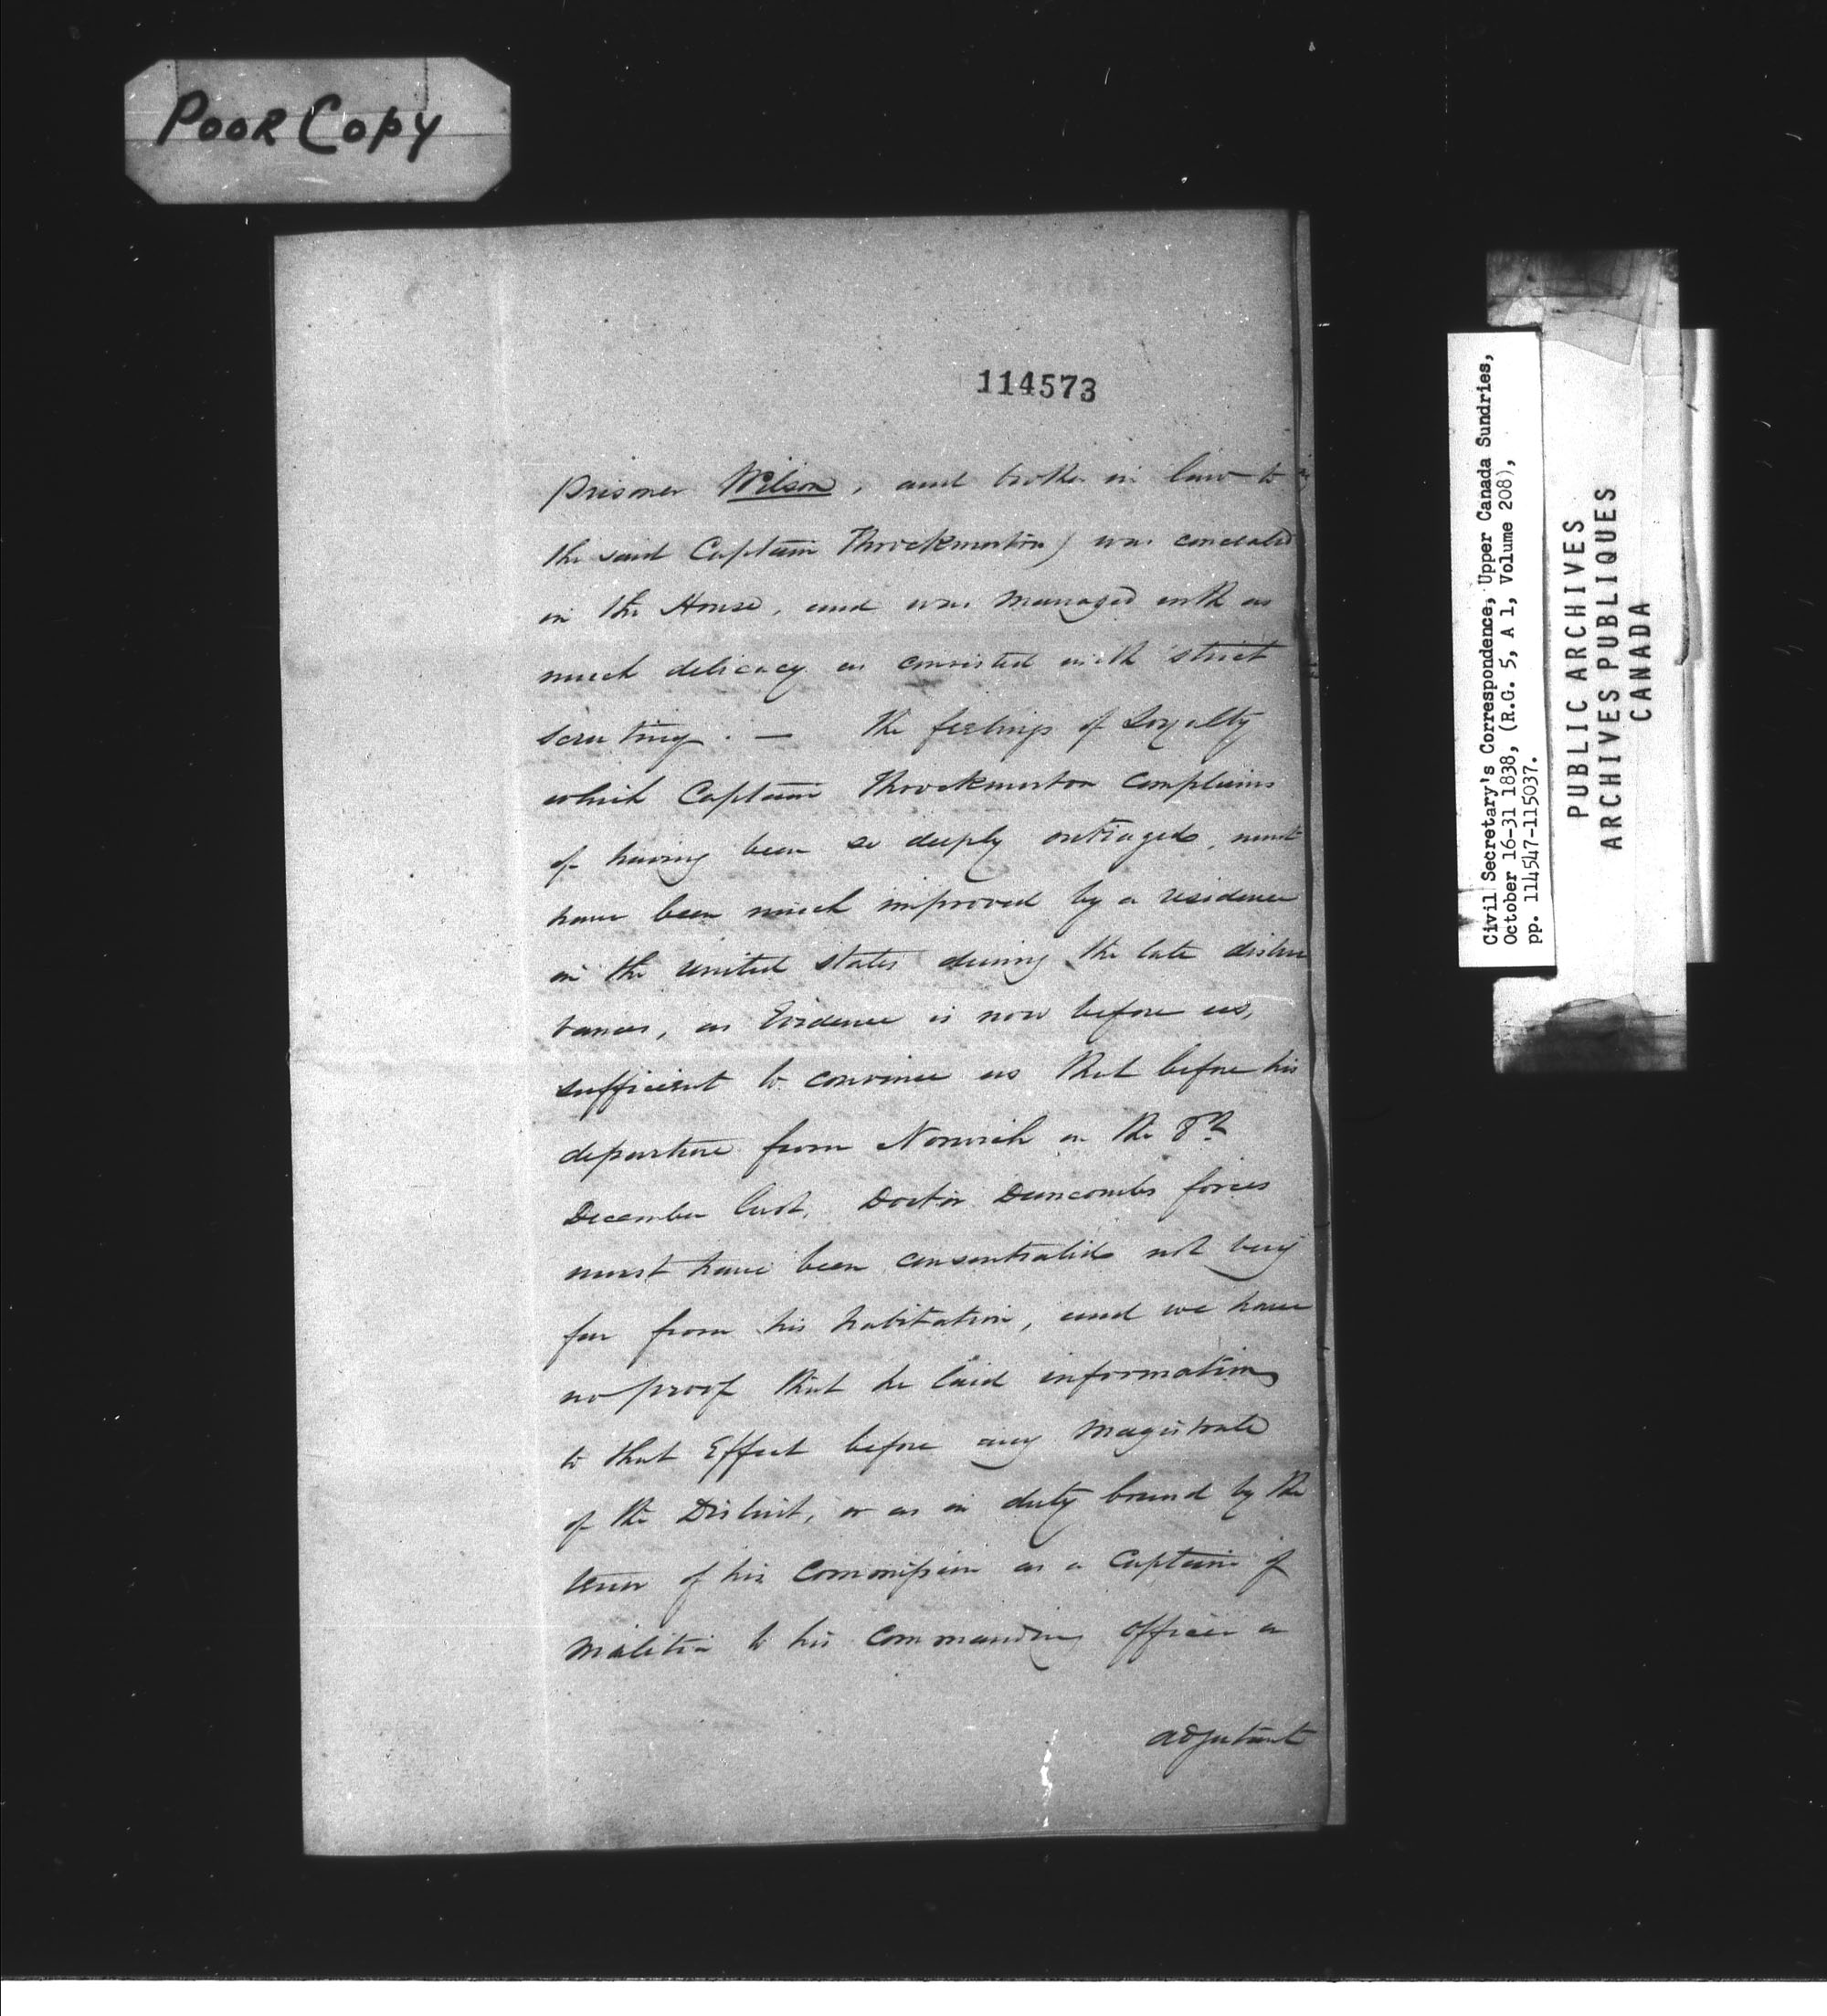 POOR COPY
114573
prisoner Wilson, and brother in law to
the said Captain Throckmorton) was concealed
in the House, and was managed with as
much delicacy as consisted with strict
scrutiny. — The feelings of Loyalty
which Captain Throckmorton complains
of having been so deeply outraged, must
have been much improved by a residence
in the United States during the late distur
bances, as Evidence is now before us,
sufficient to convince us that before his
departure from Norwich on the 8th
December last, Doctor Duncombs forces
must have been consentrated not very
far from his habitation, and we have
no proof that he laid information
to that Effect before any Magistrate
of the District, or as in duty bound by the
tenor of his Commission as a Captain of
Militia to his Commanding officer or
adjutant
Civil Secretary's Correspondence, Upper Canada Sundries,
October 16-31 1838, (R.G. 5, A 1, Volume 208),
pp. 114547-115037.
PUBLIC ARCHIVES
ARCHIVES PUBLIQUES
CANADA